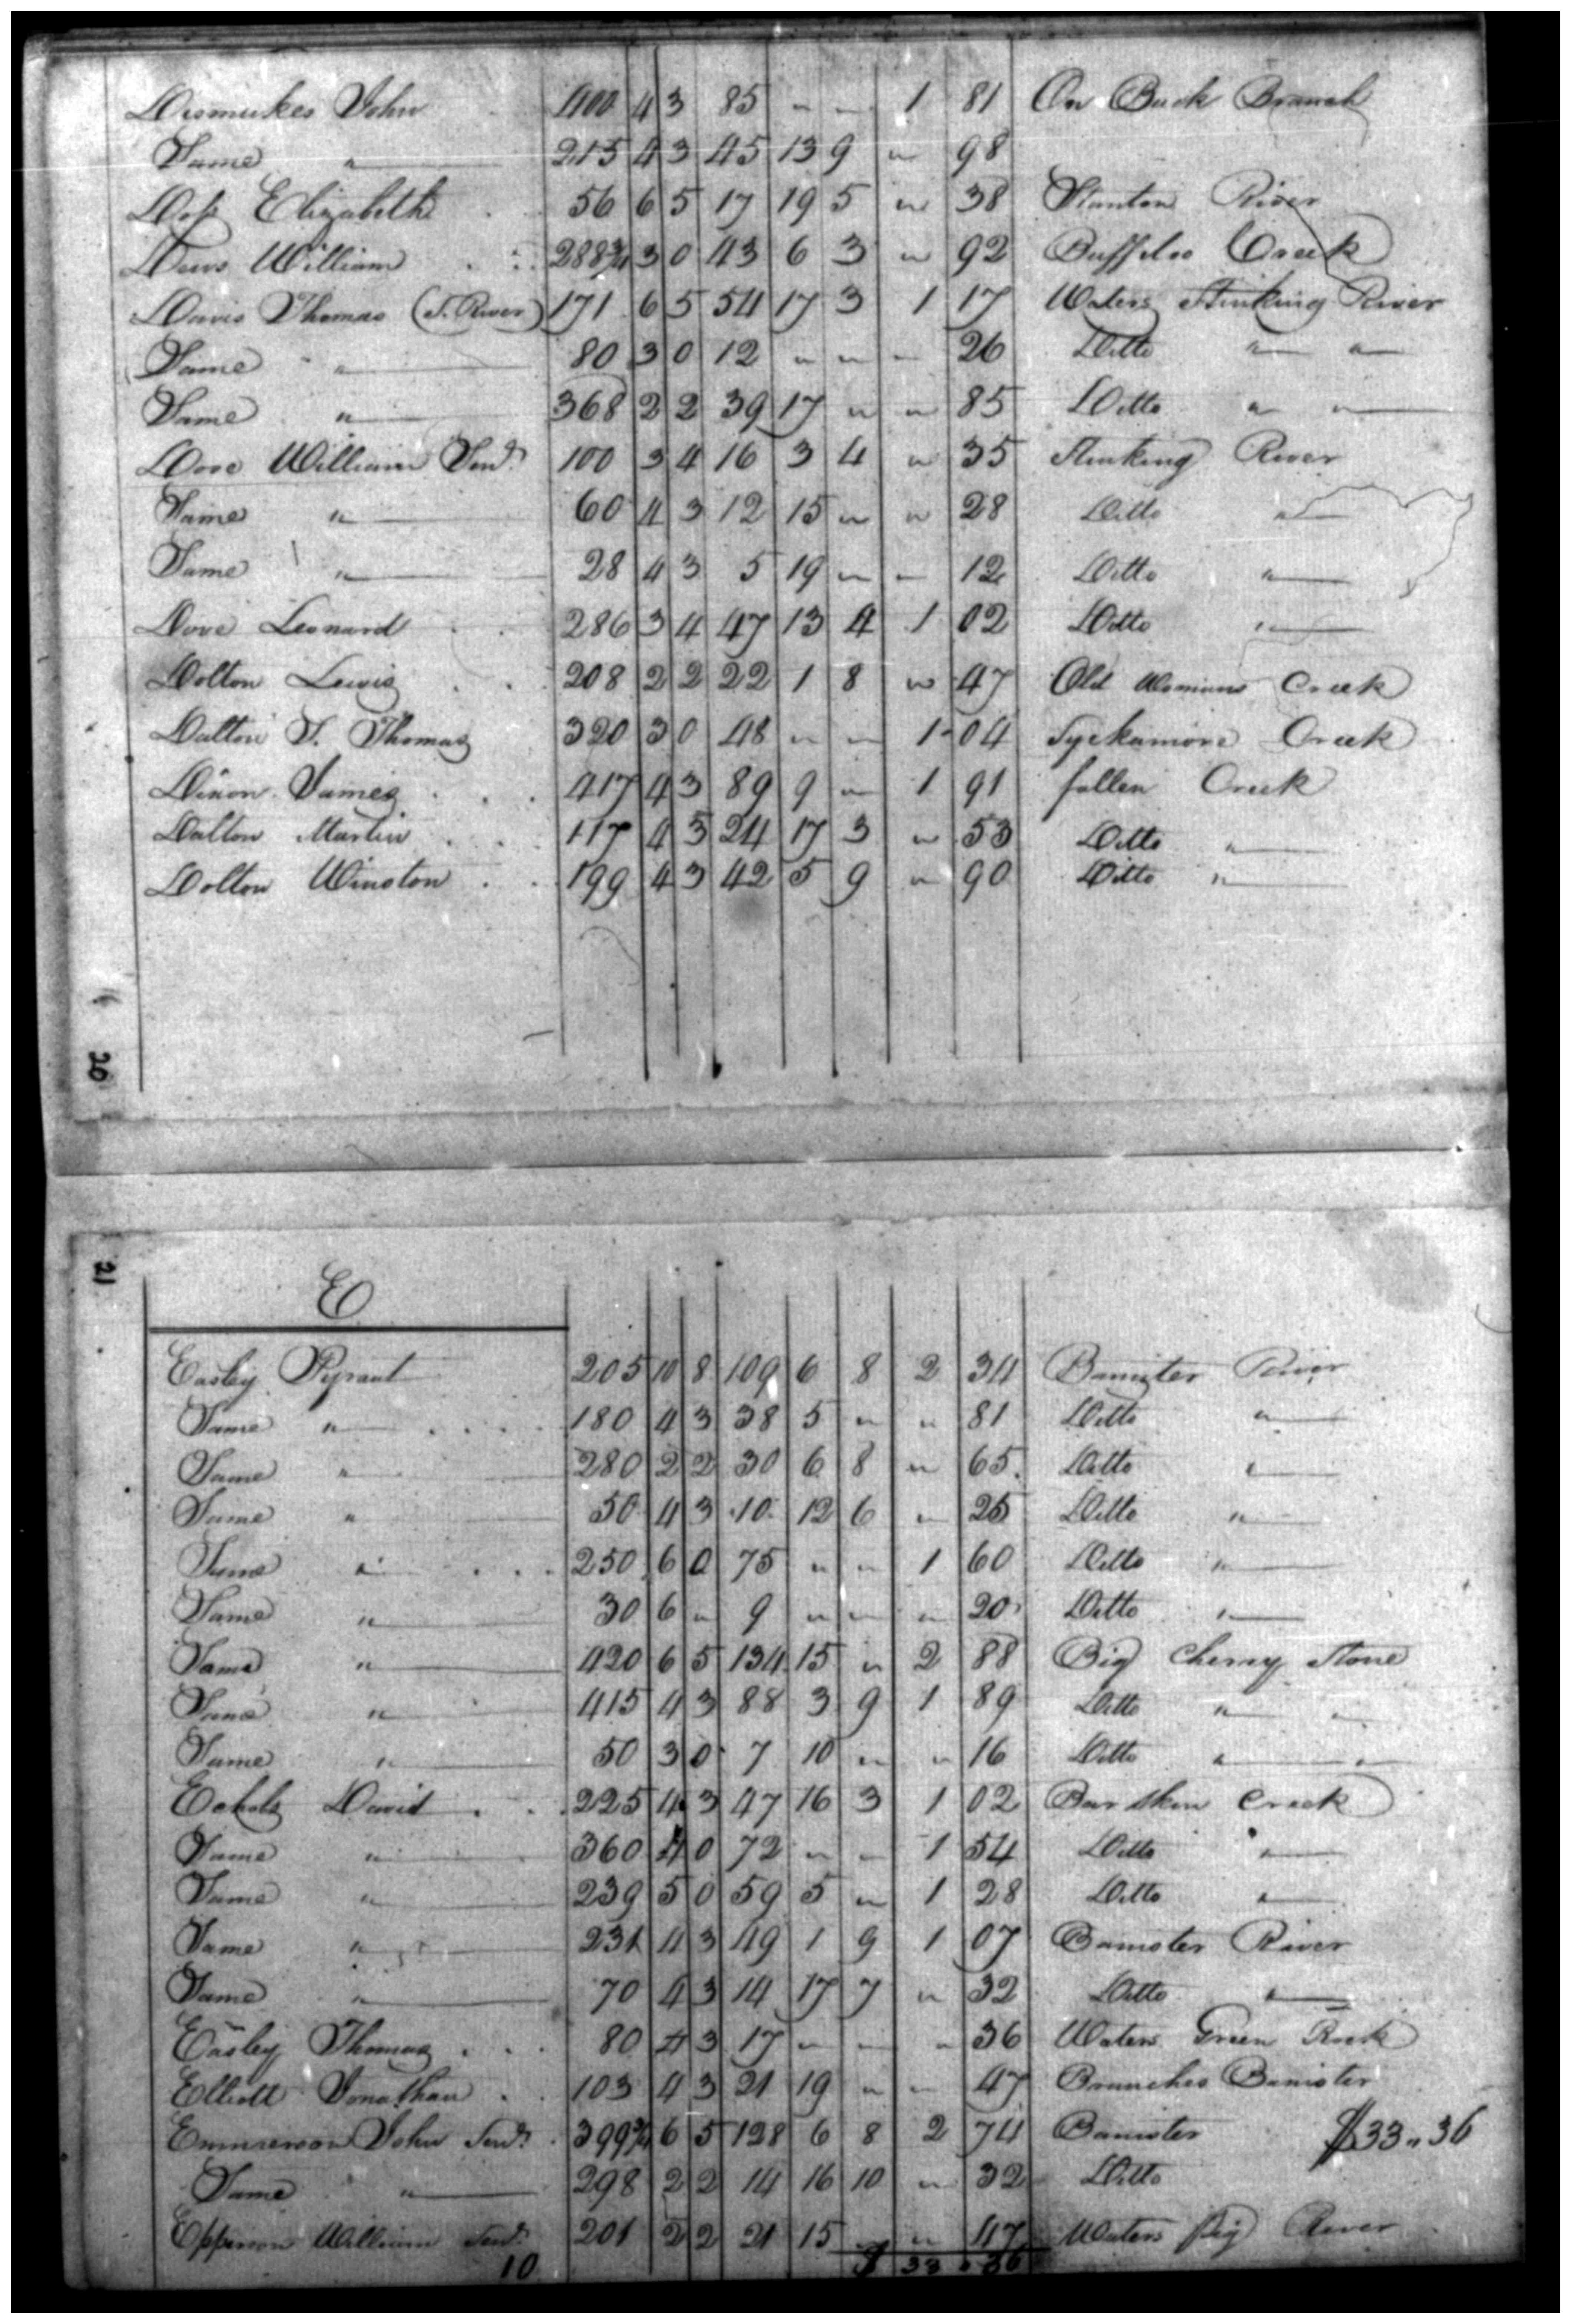 Dismukes John 400 4 3 85 " " 1 81 On Buck Branch
Same " 215 4 3 45 13 9 " 98
Doss Elizabeth 56 6 5 17 19 5 " 38 Stanton River
Dews William 288¾ 3 0 43 6 3 " 92 Buffeloo Creek
Davis Thomas (S. River) 171 6 5 54 17 3 1 17 Waters Stinking River
Same " 80 3 0 12 " " " 26 Ditto " "
Same " 368 2 2 39 17 " " 85 Ditto " "
Dove William Senr. 100 3 4 16 3 4 " 35 Stinking River
Same " 60 4 3 12 15 " " 28 Ditto "
Same " 28 4 3 5 19 " " 12 Ditto "
Dove Leonard 286 3 4 47 13 4 1 02 Ditto "
Dolton Lewis 208 2 2 22 1 8 " 47 Old Womans Creek
Dalton T. Thomas 320 3 0 48 " " 1 04 Syckamore Creek
Dixon James 417 4 3 89 9 " 1 91 fallen Creek
Dalton Martin 117 4 3 24 17 3 " 53 Ditto "
Dolton Winston 199 4 3 42 5 9 " 90 Ditto "
20
21
E
Easley Pyrant 205 10 8 109 6 8 2 34 Banister River
Same " 180 4 3 38 5 " " 81 Ditto "
Same " 280 2 2 30 6 8 " 65 Ditto "
Same " 50 4 3 10 12 6 " 25 Ditto "
Same " 250 6 0 75 " " 1 60 Ditto "
Same " 30 6 " 9 " " " 20 Ditto "
Same " 420 6 5 134 15 " 2 88 Big Cherry Stone
Same " 415 4 3 88 3 9 1 89 Ditto " "
Same " 50 3 0 7 10 " " 16 Ditto " "
Echols David 225 4 3 47 16 3 1 02 Bar Skin Creek
Same " 360 4 0 72 " " 1 54 Ditto "
Same " 239 5 0 59 5 " 1 28 Ditto "
Same " 231 4 3 49 1 9 1 07 Banister River
Same " 70 4 3 14 17 7 " 32 Ditto "
Easley Thomas 80 4 3 17 " " " 36 Waters Green Rock
Elliott Jonathan 103 4 3 21 19 " " 47 Branches Banister
Emmerson John Senr. 399¾ 6 5 128 6 8 2 74 Banister $33"36
Same " 298 2 2 14 16 10 " 32 Ditto
Epperson William Senr. 201 2 2 21 15 " " 47 Waters Pig River
10 $ 33 " 36